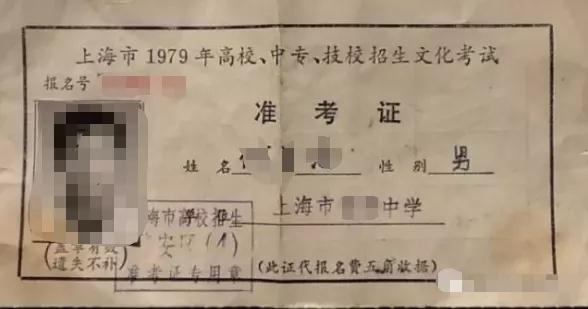 上海市1979年高校、中专、技校招生文化考试
报名号
准考证
姓名 性别 男
上海市 中学
海市高校招生
安区(1)
准考证专用章
盖章有效
遗失不补
(此证代报名费五角收据)